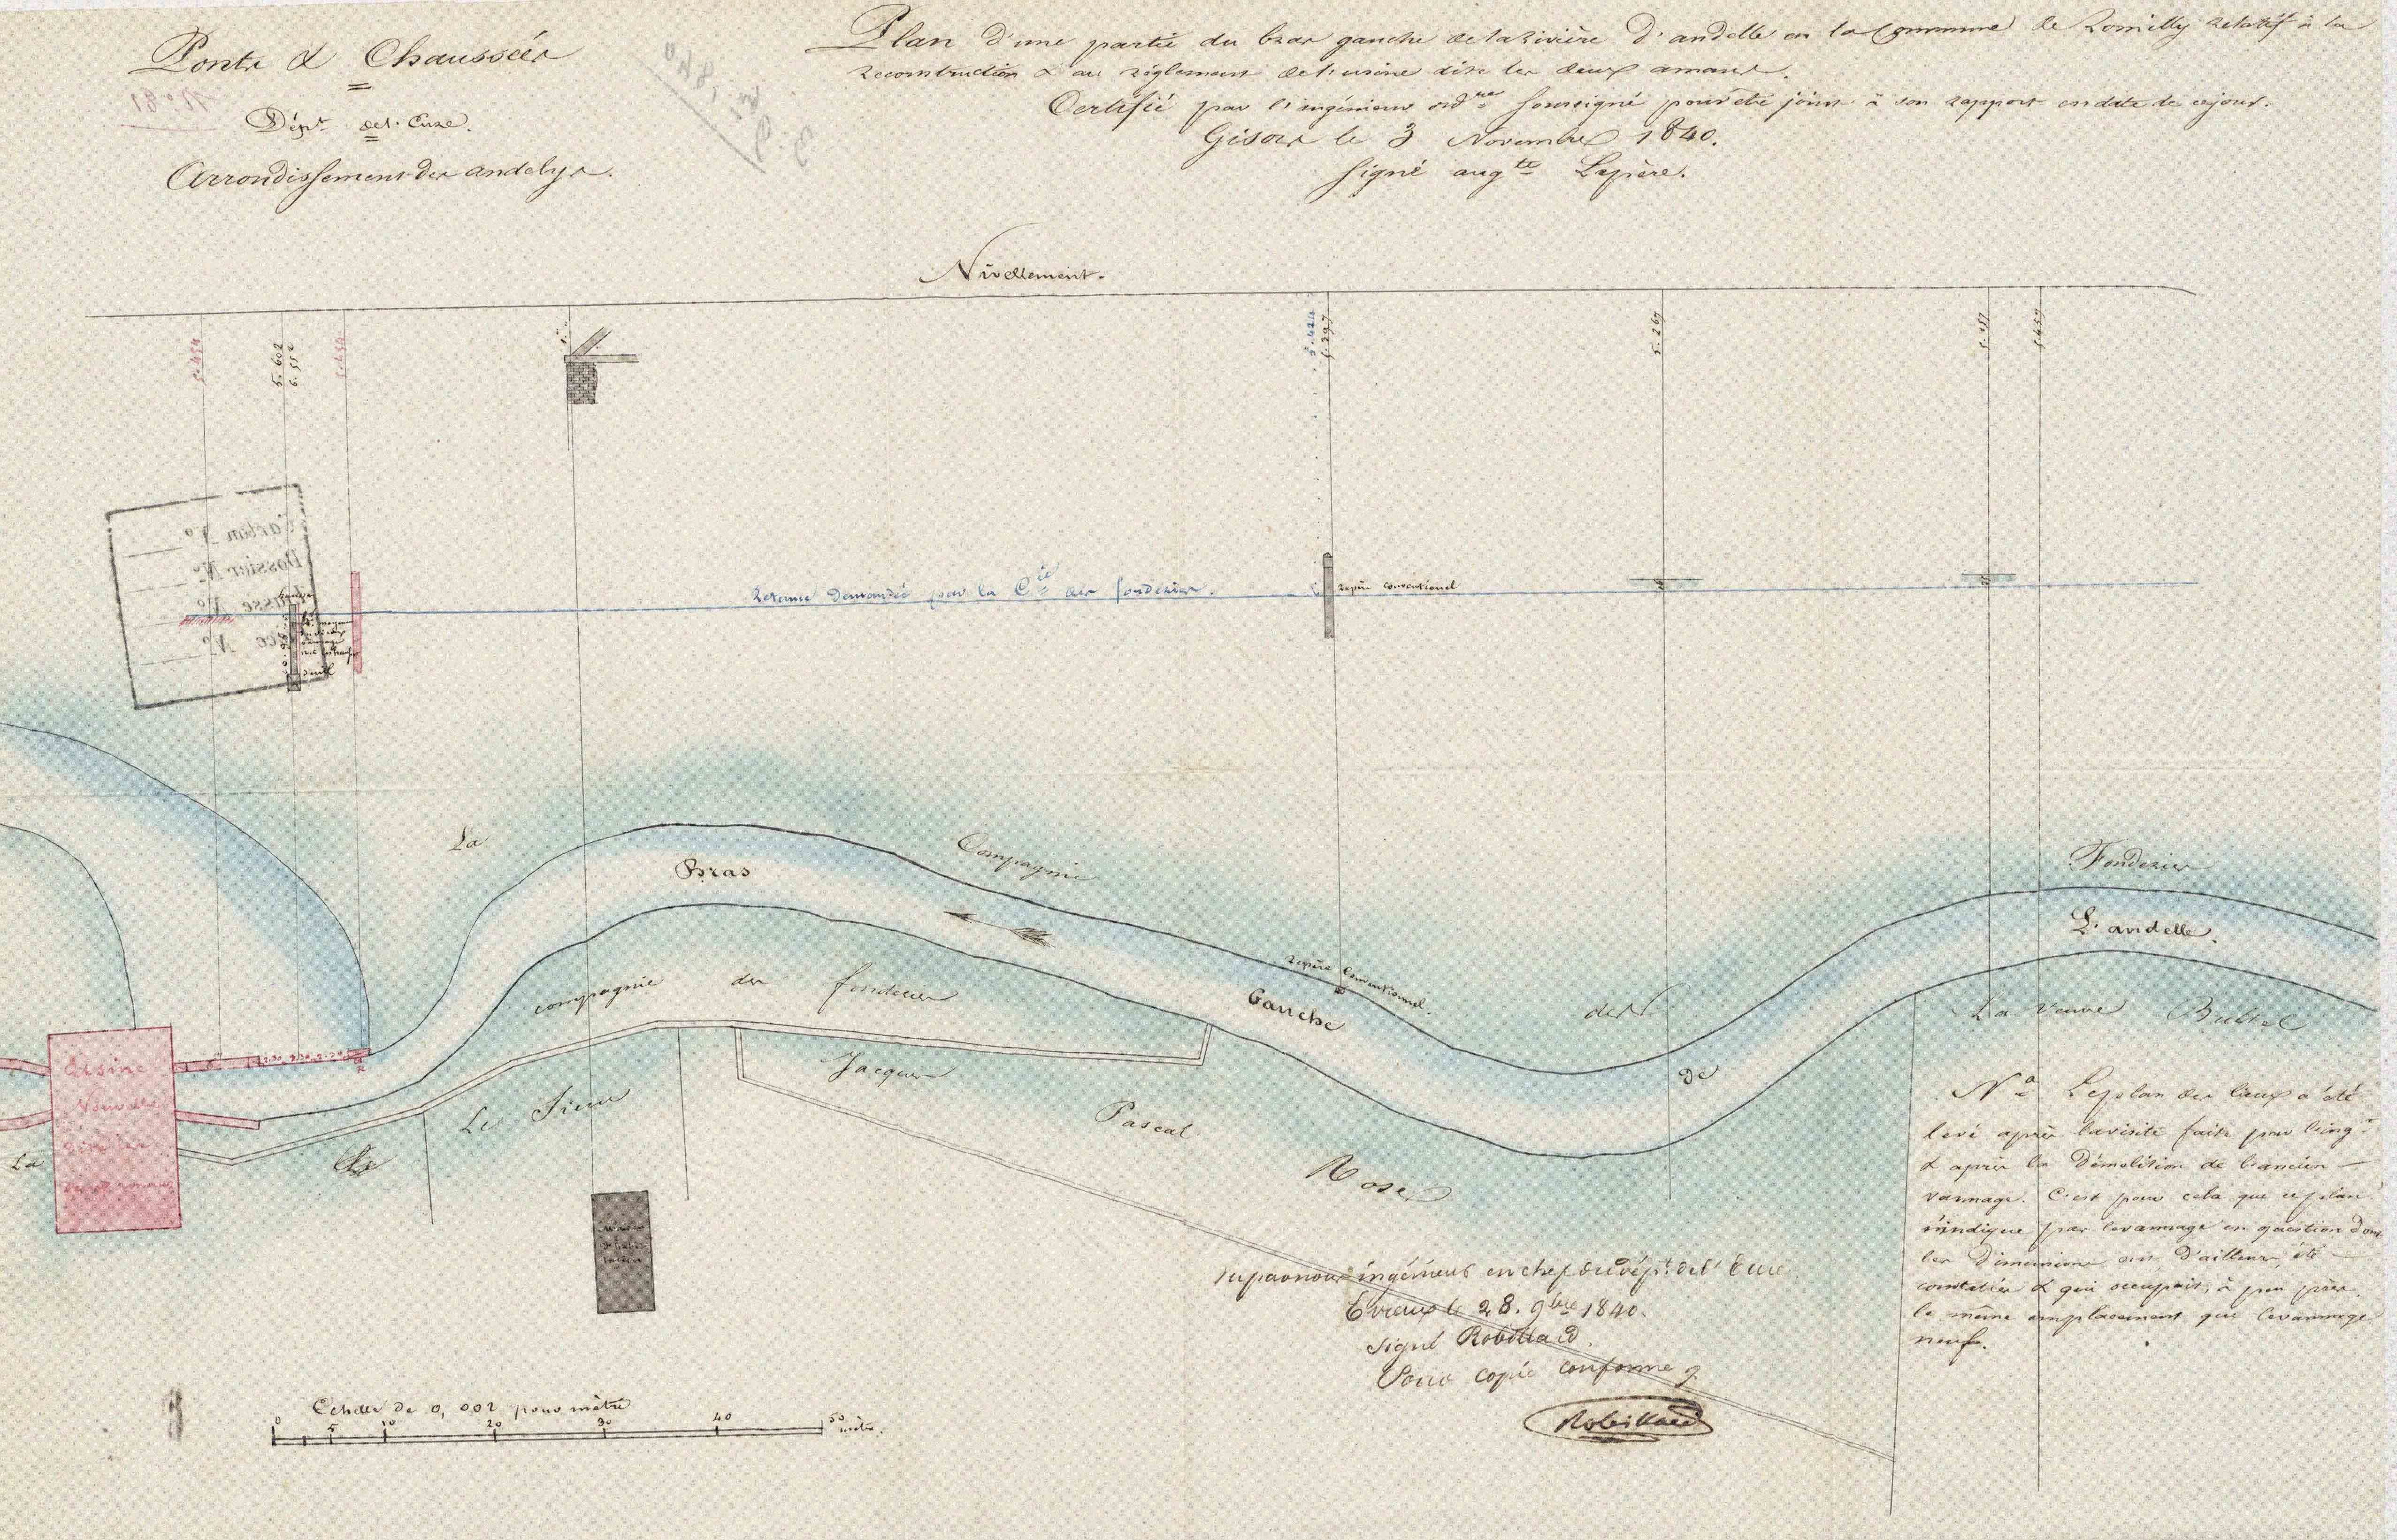 Ponts & Chaussées
Dépt. de l'Eure.
Arrondissement des andelys.
Plan d'une partie du bras gauche de la Rivière d'andelle en la Commune de Romilly relatif à la
reconstruction & au règlement de l'usine dite les deux amans.
Certifié par l'ingénieur ordre soussigné pour être joint à son rapport en date de ce jour.
Gisors le 3 Novembre 1840.
Signé augte Lepère.
No. 81
1840
Nivellement.
5.454
5.602
6.552
5.454
5.424
5.397
5.267
5.157
5.457
Carton No
Dossier No
Liasse No
Pièce No
Seuil
Retenue demandée par la Cie des fonderies.
repère conventionnel
La
Compagnie
des
Fonderies
Bras
Gauche
De
L'andelle.
repère Conventionnel.
compagnie des fonderies
Jacques
Pascal
Rose
Le Sieur
La veuve Bultel
La
Usine
Nouvelle
dite les
deux amans
6
2.30 2.30 2.30
R
Maison
d'habi-
tation
Na Le plan des lieux a été
levé après la visite faite par l'ingr
& après la Démolition de l'ancien
vannage. C'est pour cela que ce plan
n'indique pas le vannage en question dont
les Dimensions ont, d'ailleurs, été
constatées & qui occupait, à peu près,
le même emplacement que le vannage
neuf.
Vu par nous ingénieur en chef du dépt. de l'Eure.
Evreux le 28. 9bre 1840.
signé Robillard.
Pour copie conforme
Robillard
Echelle de 0,002 pour mètre
0 5 10 20 30 40 50 mètres.